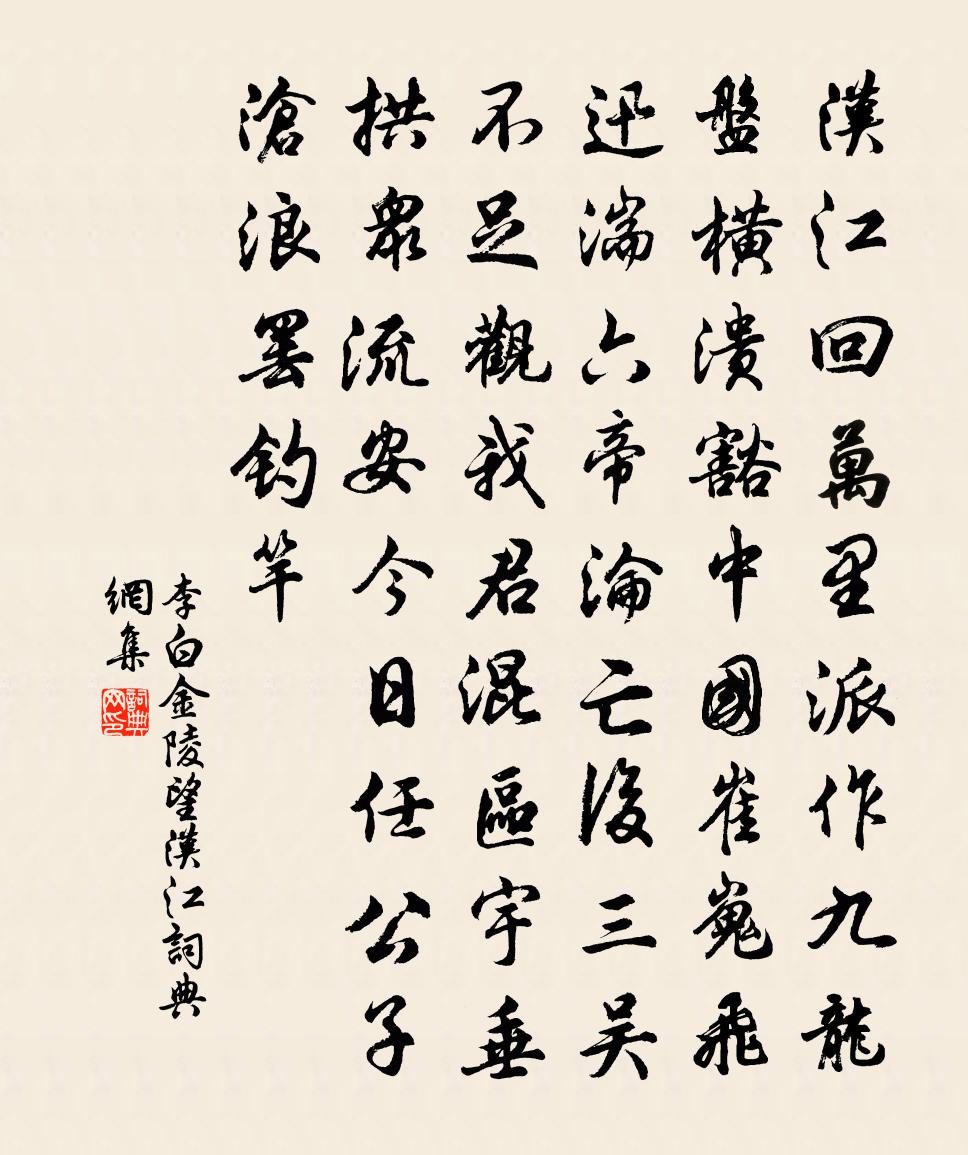 漢江回萬里派作九龍
盤橫潰豁中國崔嵬飛
迅湍六帝淪亡後三吴
不足觀我君混區宇垂
拱衆流安今日任公子
滄浪罢钓竿
李白金陵望漢江詞典
網集
詞典
网印